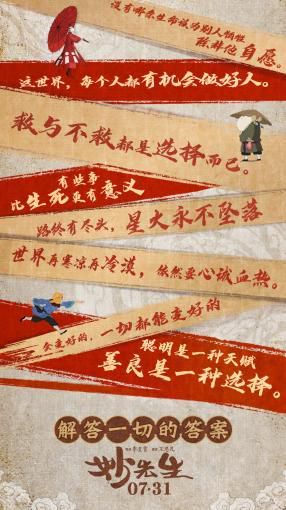 没有哪条生命该为别人牺牲
除非他自愿。
这世界，每个人都有机会做好人。
救与不救都是选择而已。
有些事
比生死更有意义
路终有尽头，星火永不坠落
世界再寒凉再冷漠，依然要心诚血热。
会变好的，一切都能变好的
聪明是一种天赋
善良是一种选择。
解答一切的答案
妙先生
07·31